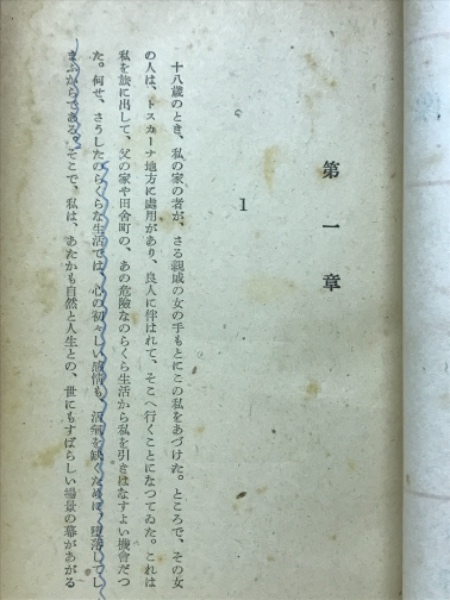 第一章
1
十八歳のとき、私の家の者が、さる親戚の女の手もとにこの私をあづけた。ところで、その女
の人は、トスカーナ地方に處用があり、良人に伴はれて、そこへ行くことになつてゐた。これは
私を旅に出して、父の家や田舍町の、あの危險なのらくら生活から私を引きはなすよい機會だつ
た。何せ、さうしたのらくらな生活では、心の初々しい感情も、活氣を缺くために、墮落してし
まふからである。そこで、私は、あたかも自然と人生との、世にもすばらしい場景の幕があがる